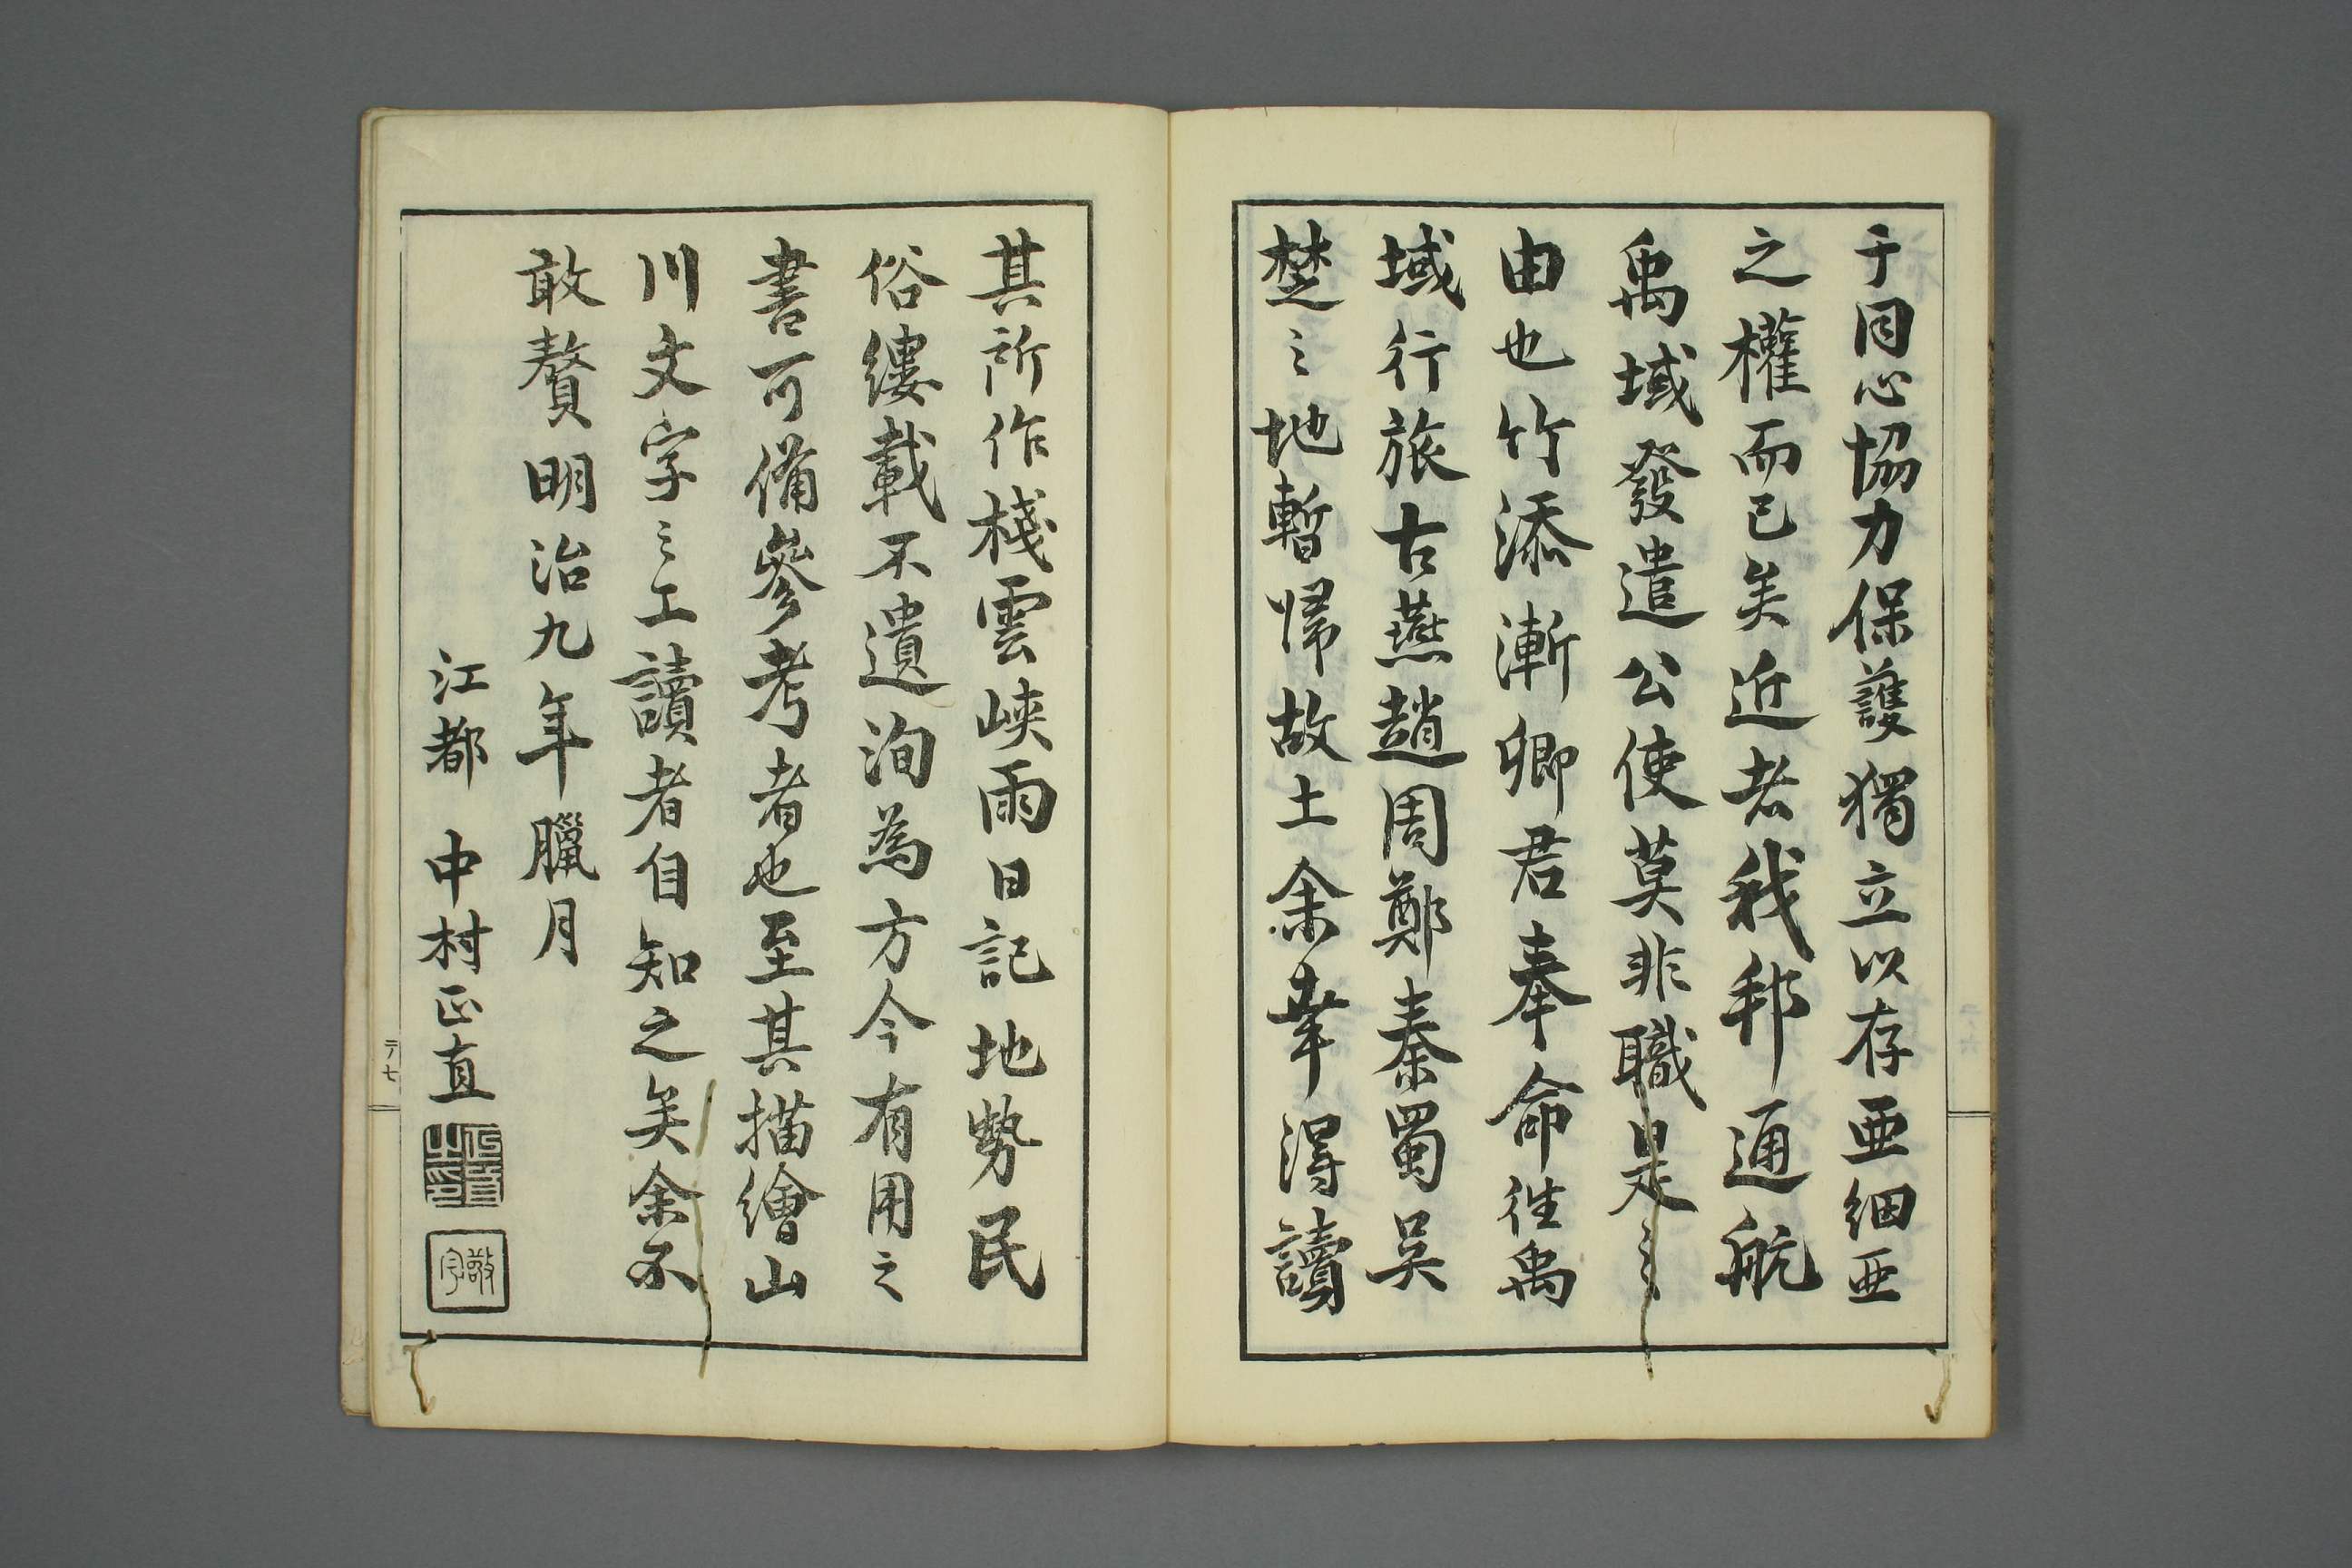 于同心協力保護獨立以存亜細亜
之權而已矣近者我邦通航
禹域發遣公使莫非職是之
由也竹添漸卿君奉命往禹
域行旅古燕趙周鄭秦蜀吳
楚之地暫帰故土余幸得讀
其所作棧雲峽雨日記地勢民
俗縷載不遺洵為方今有用之
書可備參考者也至其描繪山
川文字之工讀者自知之矣余不
敢贅明治九年臘月
江都 中村正直
正直之印
敬宇